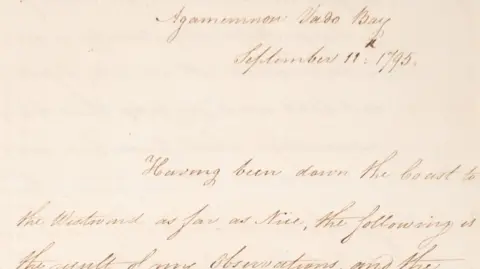 Agamemnon Vado Bay
September 11th 1795.
Having been down the Coast to
the Westward as far as Nice, the following is
the result of my observations and the